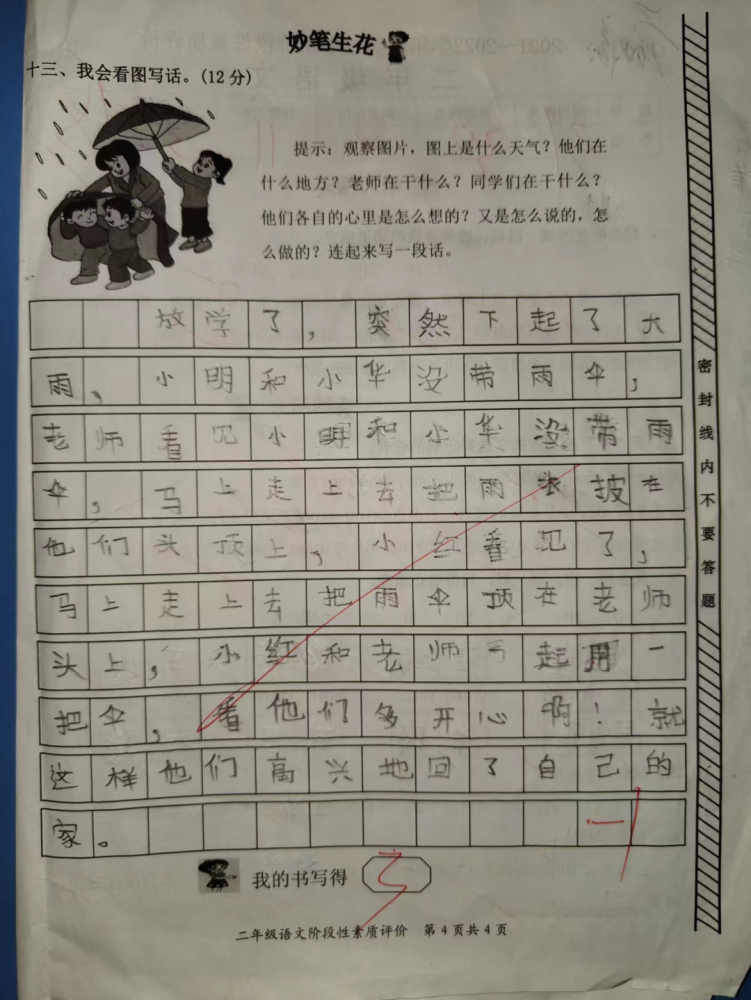 妙笔生花
十三、我会看图写话。(12分)
提示：观察图片，图上是什么天气？他们在
什么地方？老师在干什么？同学们在干什么？
他们各自的心里是怎么想的？又是怎么说的，怎
么做的？连起来写一段话。
放学了，突然下起了大
雨，小明和小华没带雨伞，
老师看见小明和小华没带雨
伞，马上走上去把雨衣披在
他们头顶上，小红看见了，
马上走上去把雨伞顶在老师
头上，小红和老师一起用一
把伞，看他们多开心啊！就
这样他们高兴地回了自己的
家。
一1
我的书写得 3
二年级语文阶段性素质评价 第4页共4页
密封线内不要答题